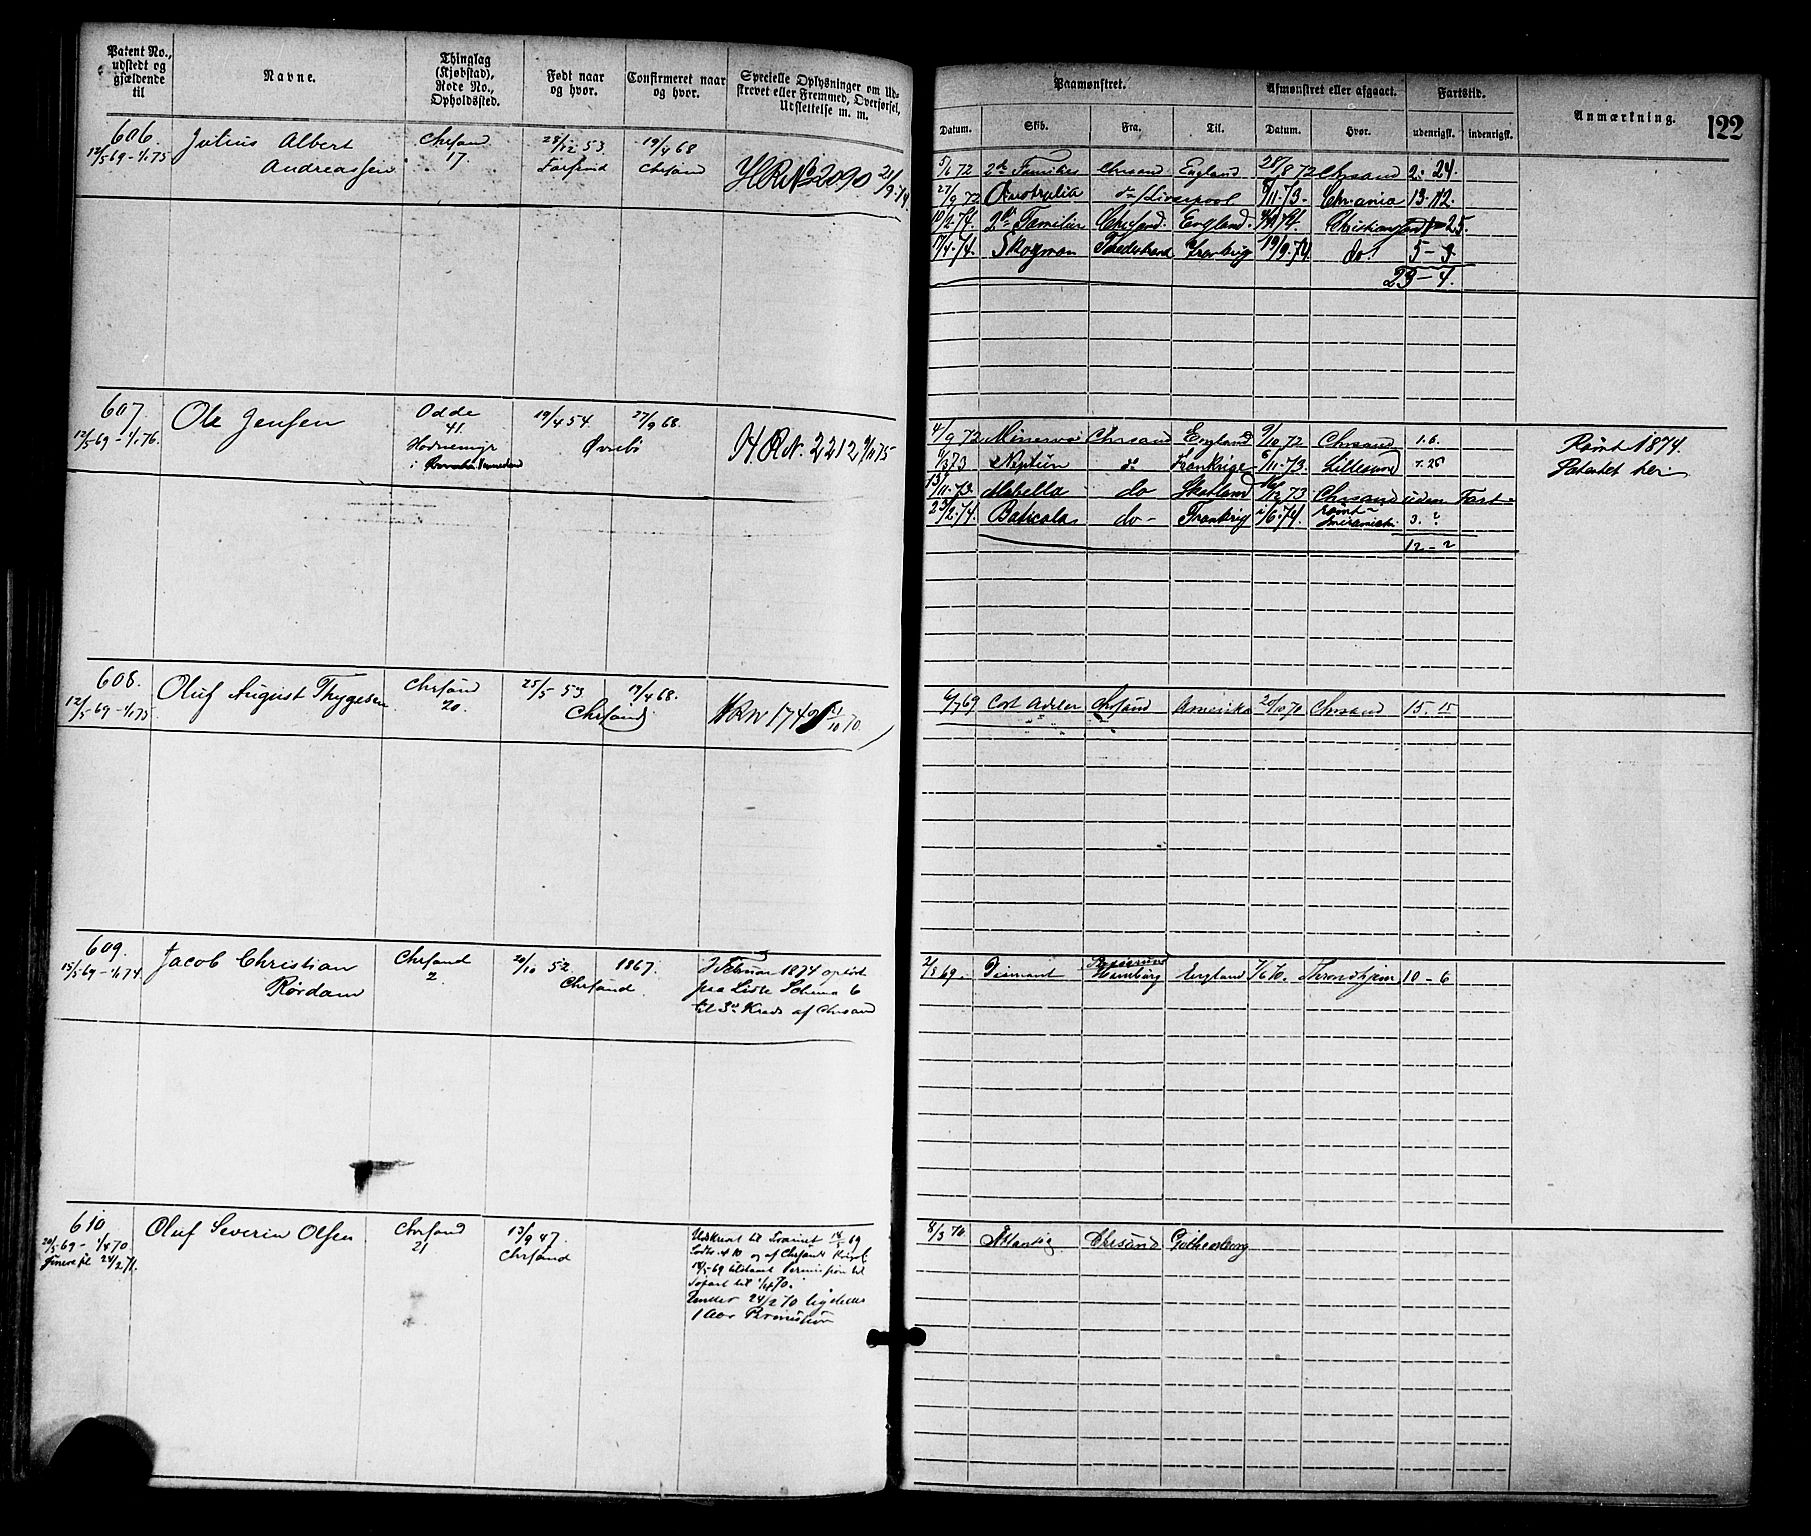 Patent No., udstedt og gjældende til
Navne.
Thinglag (Kjøbstad), Rode No., Opholdssted.
Født naar og hvor.
Confirmeret naar og hvor.
Specielle Oplysninger om Udskrevet eller Fremmed, Overførsel, Udslettelse m. m.
Paamønstret.
Afmønstret eller afgaaet.
Fartstid.
Anmærkning.
122
Datum. Skib. Fra. Til. Datum. Hvor. udenrigst. indenrigst.
606.
12/5 69 - 1/1 75
Julius Albert
Andreassen
Chrsand
17
28/12 53
19/4 68
Chrsand
H.R.No 2090 21/9.74
5/6 72 2de Familier Chrsand England 28/8 72 Chrsand 2. 24.
27/9 72 Australia do Liverpool 8/11-73 - Chr.ania 13.12.
10/2 74. 2de Familier Chrsand England. Christiansand 1-25.
17/4-74. Skogman Tvedestrand Frankrig 19/9.74 do. 5-3.
23-4.
607.
12/5-69 - 1/1 76.
Ole Jensen
Odde
41.
19/4 54
27/9 68.
Øvrebø
H.R.N. 2212
4/9 72 Minerva Chrsand England 9/10 72 Chrsand 1.6.
Neptun do Frankrige 6/11-73. Lillesand 7.25
13/11-73. Mabella do Skotland 16/12 73 Chrsand uden Fart
23/2.74. Baticola do- Frankrig 6.74. rømt 3.?
Miramichi
12-2
Rømt 1874.
Patentet her.
608.
12/5-69 - 1/1 75.
Oluf August Thygesen
Chrsand
20.
25/5 53
19/4 68.
Chrsand.
HRN 1740 21/10 70.
6/7 69 Cort Adeler Chrsand Amerika 20/10 70 Chrsand 15. 15
609.
15/5-69 - 1/1 74.
Jacob Christian
Rørdam
Chrsand
2.
20/10 52.
1867.
Chrsand.
I Februar 1874 opført
paa Liste Schema 6
til 3die Kreds af Chrsand
2/8 69. Diamant Hamburg England 7/6 70. Throndhjem 10-6
610
20/5-69 - 1/4 70
24/2 71.
Oluf Severin Olsen
Chrsand
21
13/9 47.
Chrsand
Udskrevet til Trainet 14/5 69
Lodtr. N 10 og af Chrsands Komp.
18/5-69 tilstaaet Permission til
Søfart til 1/4 70.
Under 24/2 70 ligeledes
1 Aar Permission
8/3 70. Atlantic Chrsand Gothenborg